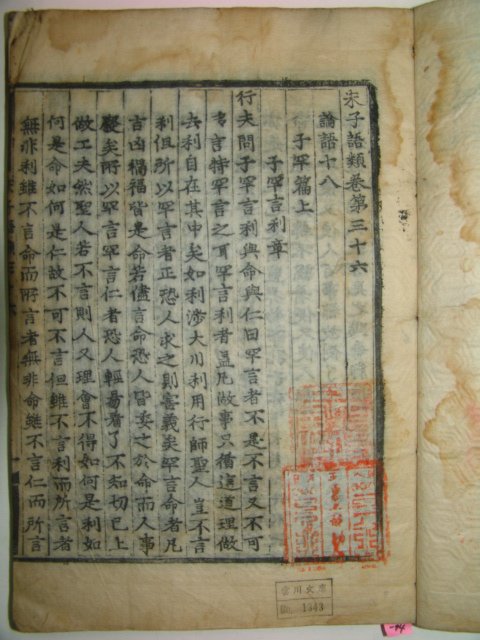 朱子語類卷第三十六
論語十八
子罕篇上
子罕言利章
行夫問子罕言利與命與仁曰罕言者不是不言又不可
多言特罕言之耳罕言利者蓋凡做事只循這道理做
去利自在其中矣如利涉大川利用行師聖人豈不言
利但所以罕言者正恐人求之則害義矣罕言命者凡
吉凶禍福皆是命若儘言命恐人皆委之於命而人事
廢矣所以罕言罕言仁者恐人輕易看了不知切己上
做工夫然聖人若不言則人又理會不得如何是利如
何是命如何是仁故不可不言但雖不言利而所言者
無非利雖不言命而所言者無非命雖不言仁而所言
雲川文庫
No. 1343